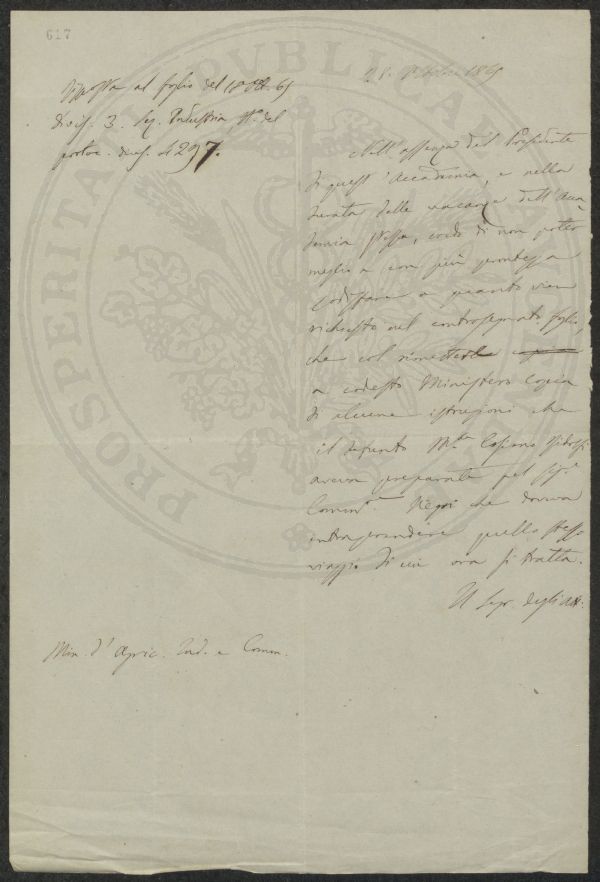 617
21. Ottobre 1865
Risposta al foglio del 18 Ott. 65
Divis. 3. Sez. Industria N.º del
protoc. div. 4297.
Nell'assenza del Presidente
di quest'Accademia, e nella
durata delle vacanze dell'Acca
demia stessa, credo di non poter
meglio e con più prontezza
sodisfare a quanto vien
richiesto nel controsegnato foglio,
che col rimettere
a codesto Ministero copia
di alcune istruzioni che
il defunto M.se Cosimo Ridolfi
aveva preparate pel Sig.r
Comm.r Negri che doveva
intraprendere quello stesso
viaggio di cui ora si tratta.
Il Segr. degli Atti
Min. d'Agric. Ind. e Comm.
PROSPERITATI PUBLICAE AUGENDAE